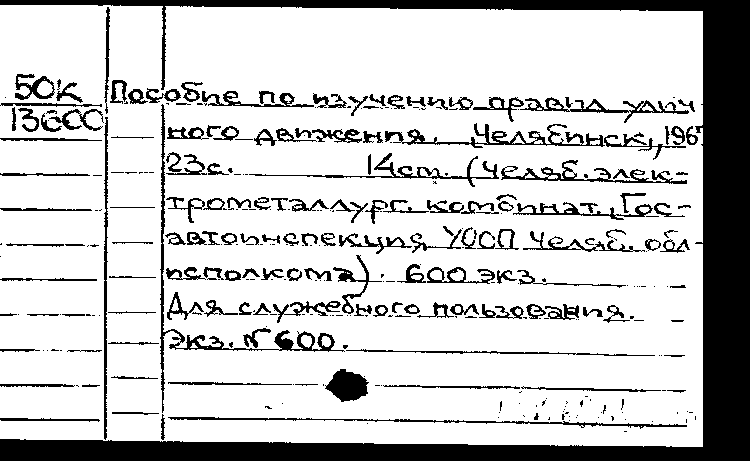 50К Пособие по изучению правил улич-
13600 ного движения. Челябинск, 196
23с. 14см. (Челяб. элек-
трометаллург. комбинат. Гос-
автоинспекция УООП Челяб. обл-
исполкома). 600 экз.
Для служебного пользования.
Экз. № 600.